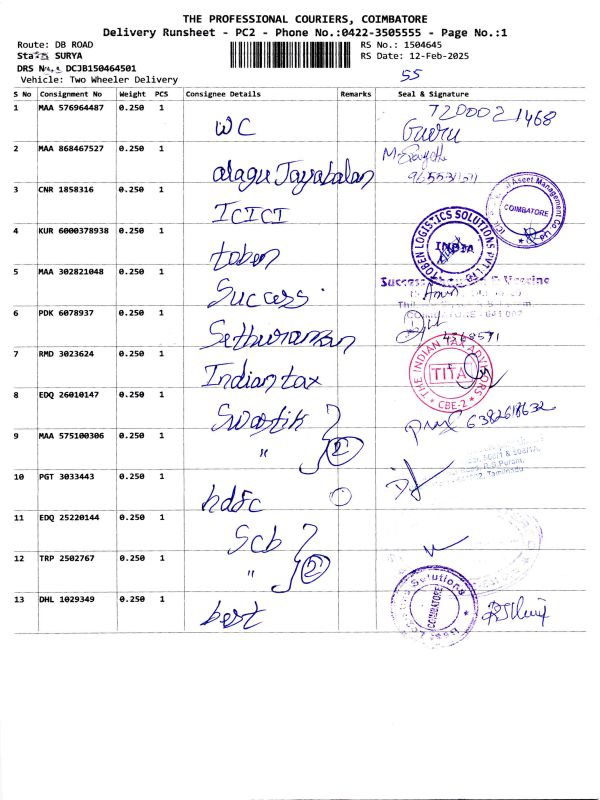 THE PROFESSIONAL COURIERS, COIMBATORE
Delivery Runsheet - PC2 - Phone No.:0422-3505555 - Page No.:1
Route: DB ROAD
RS No.: 1504645
SURYA
RS Date: 12-Feb-2025
DRS No.: DCJB150464501
Vehicle: Two Wheeler Delivery
55
S No Consignment No Weight PCS Consignee Details Remarks Seal & Signature
1 MAA 576964487 0.250 1 WC 7200021468
Guru
2 MAA 868467527 0.250 1 alagu Jayabalan
3 CNR 1858316 0.250 1 ICICI COIMBATORE
4 KUR 6000378938 0.250 1 toben TOBEN LOGISTICS SOLUTIONS PVT LTD INDIA
5 MAA 302821048 0.250 1 Success
6 PDK 6078937 0.250 1 Sethuraman
7 RMD 3023624 0.250 1 Indian tax THE INDIAN TAX ADVISORS TITA CBE-2
8 EDQ 26010147 0.250 1 Swastik 6382618632
9 MAA 575100306 0.250 1 " 2
10 PGT 3033443 0.250 1 hdfc
11 EDQ 25220144 0.250 1 Scb
12 TRP 2502767 0.250 1 " 2
13 DHL 1029349 0.250 1 best Solutions COIMBATORE